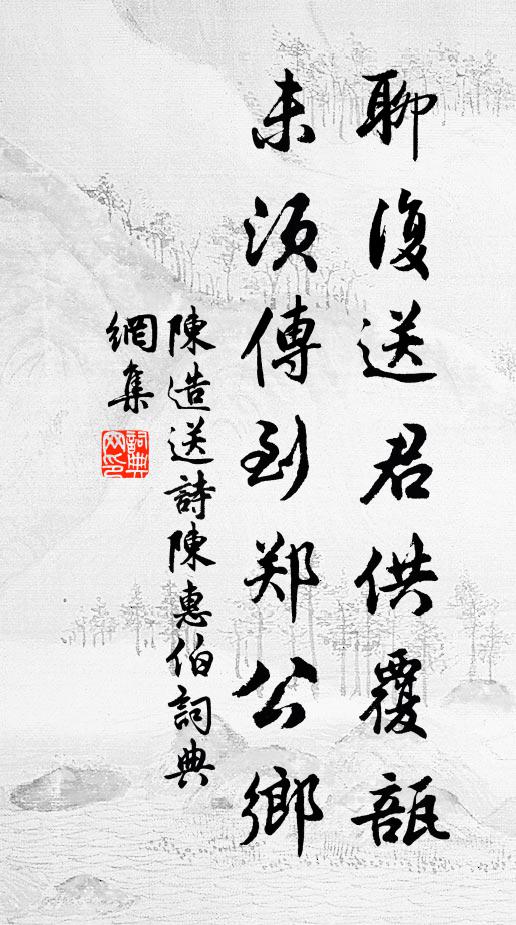 聊復送君供覆瓿
未須傳到郑公鄉
陳造送詩陳惠伯詞典
網集
詞典
网印